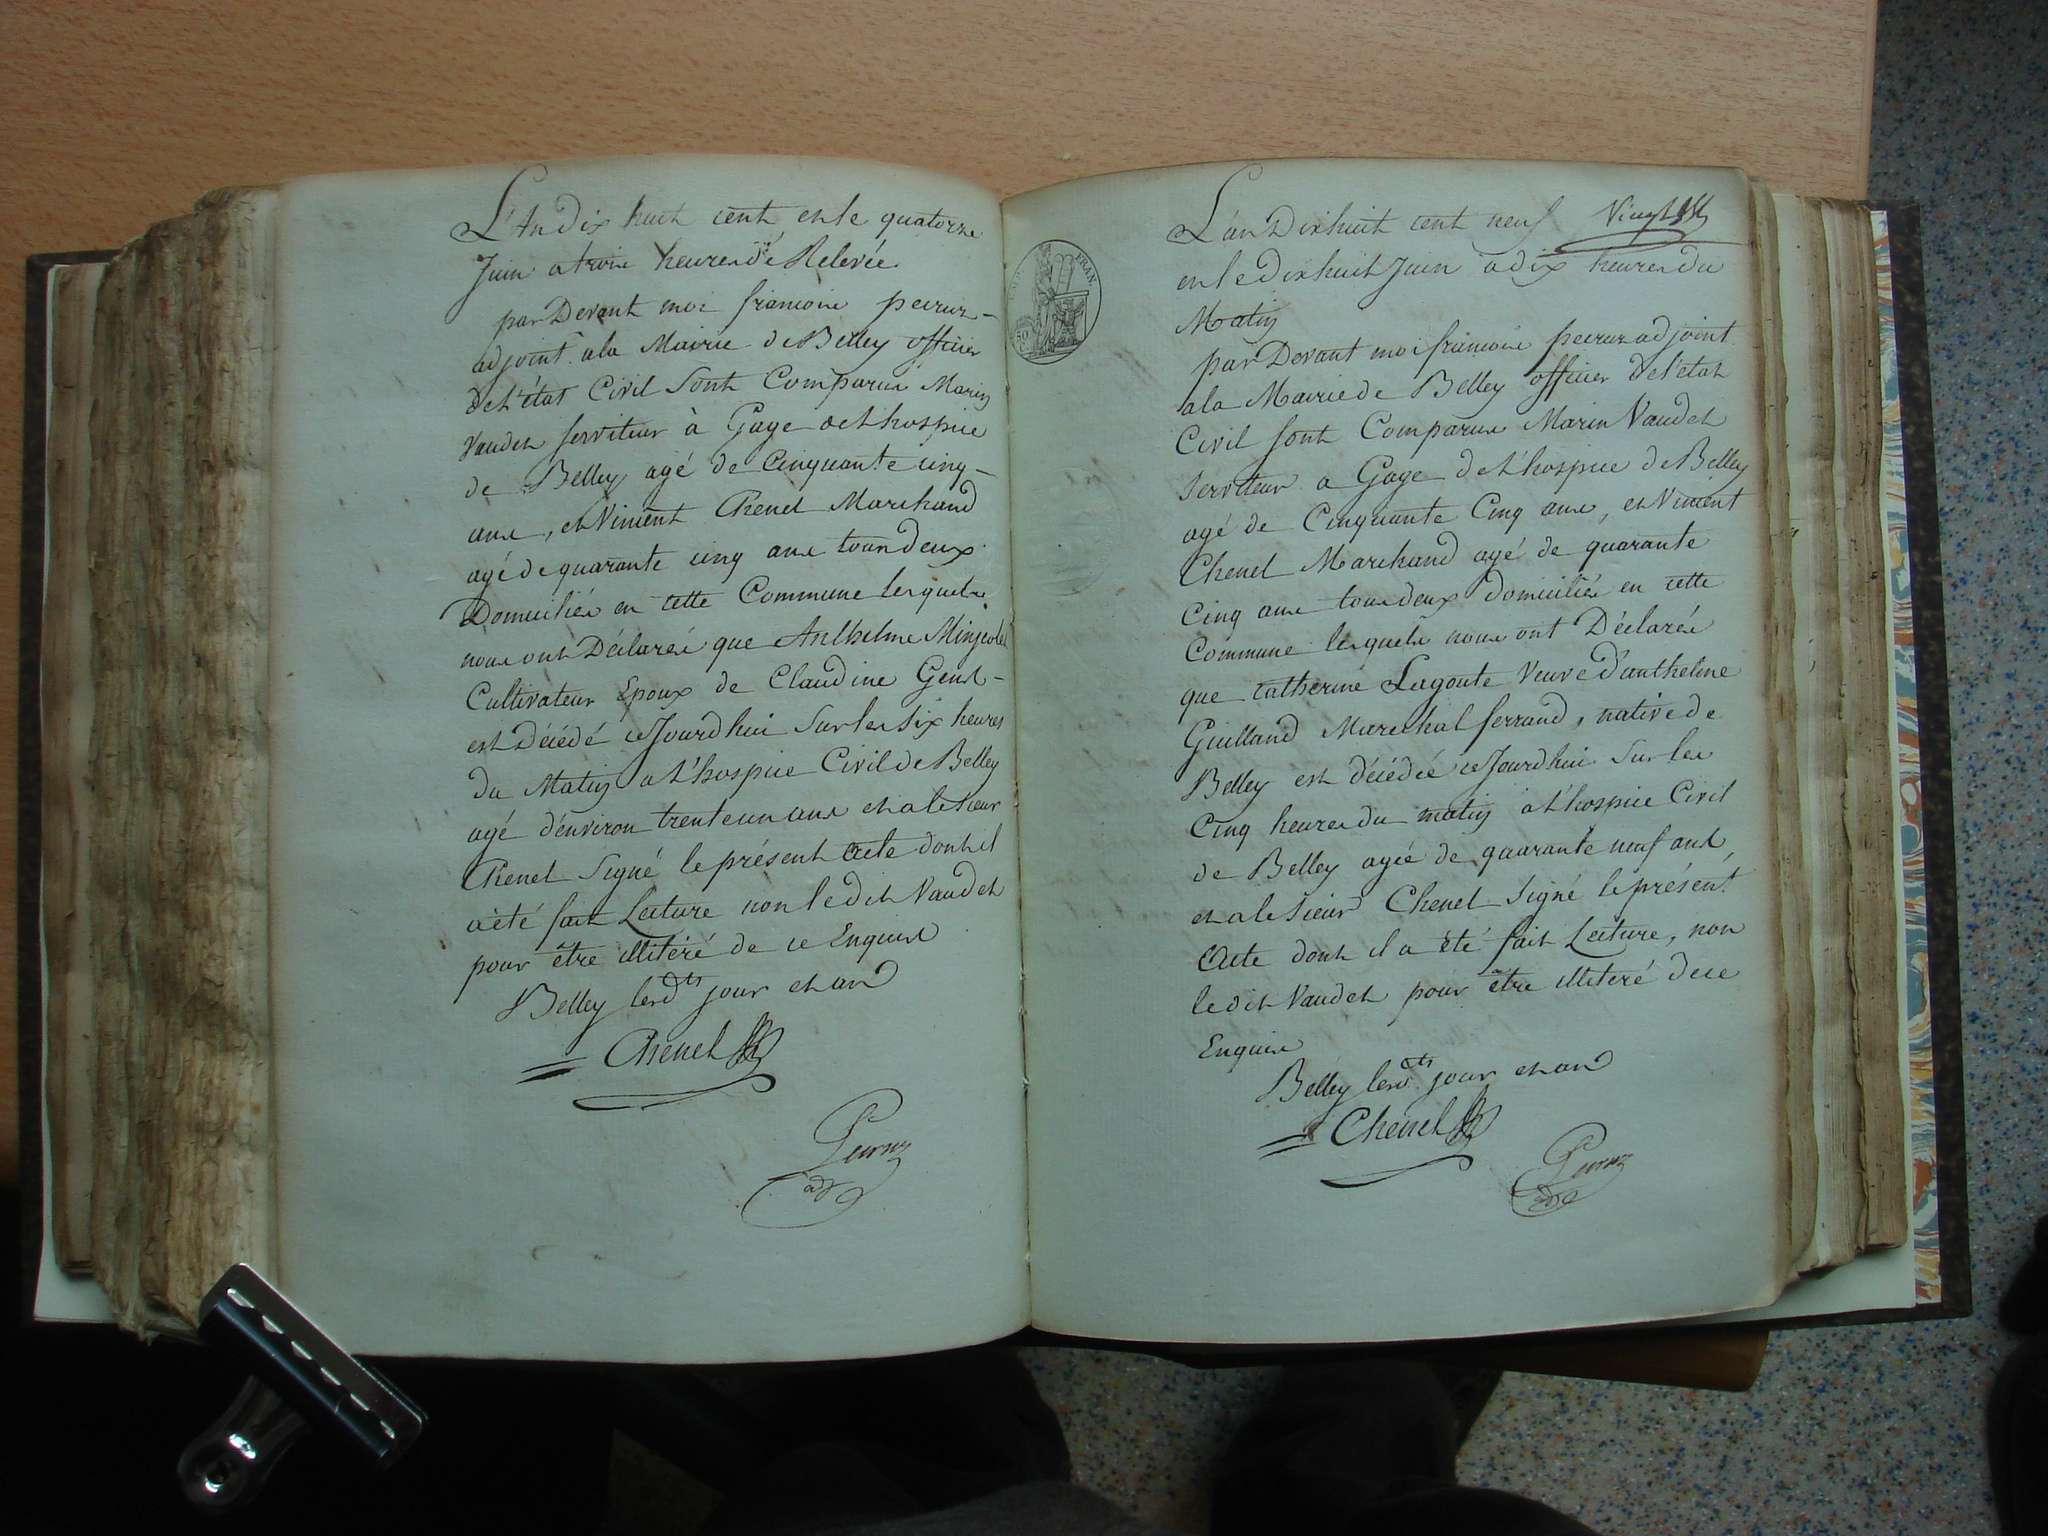 L'An dix huit cent, en le quatorze
Juin a trois heures de Relevée
par Devant moi francois peiruz
adjoint a la Mairie de Belley officier
de l'état Civil sont Comparus Marin
Vaudet serviteur à Gage de l'hospice
de Belley agé de Cinquante cinq
ans, et Vincent Chenet Marchand
agé de quarante cinq ans tous deux
Domiciliés en cette Commune lesquels
nous ont Déclarés que Anthelme
Cultivateur Epoux de Claudine
est Décédé ce Jourd'hui sur les six heures
du Matin a l'hospice Civil de Belley
agé d'environ trente un ans et a le sieur
Chenet Signé le présent Acte dont il
a été fait Lecture non le dit Vaudet
pour être illitéré de ce Enquis
Belley les dts jour et an
Chenet
Peiruz
adj
L'an Dix huit cent neuf Vingt
en le dix huit Juin a dix heures du
Matin
par Devant moi francois peiruz adjoint
a la Mairie de Belley officier de l'état
Civil sont Comparus Marin Vaudet
serviteur a Gage de l'hospice de Belley
agé de Cinquante Cinq ans, et Vincent
Chenet Marchand agé de quarante
Cinq ans tous deux domiciliés en cette
Commune lesquels nous ont Déclarés
que Catherine Lagoute Veuve d'anthelme
Guilland Marechal ferrand, native de
Belley est décédée ce Jourd'hui sur les
Cinq heures du matin a l'hospice Civil
de Belley agée de quarante neuf ans
et a le sieur Chenet Signé le présent
Acte dont il a été fait Lecture, non
le dit Vaudet pour être illitéré de ce
Enquis
Belley les dts jour et an
Chenet
Peiruz
adj